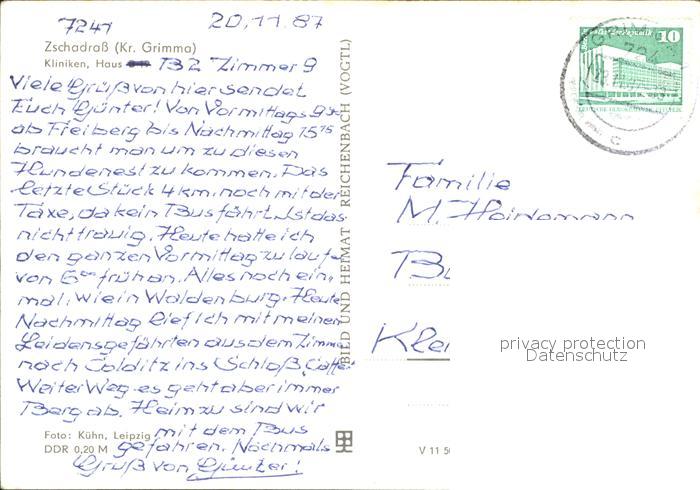 7241 20.11.87
Zschadraß (Kr. Grimma)
Kliniken, Haus B2 Zimmer 9
Viele Grüß von hier sendet
Euch Günter! Von Vormittags 9
ab Freiberg bis Nachmittag 15 15
braucht man um zu diesen
Hundenest zu kommen. Das
letzte Stück 4 km. noch mit der
Taxe, da kein Bus fährt. Ist das
nicht traurig. Heute hatte ich
den ganzen Vormittag zu laufe
von 6 00 früh an. Alles noch ein,
mal, wie in Waldenburg. Heute
Nachmittag lief ich mit meinen
Leidensgefährten aus dem Zimme
nach Colditz ins Schloß Caffe
Weiter Weg es geht aber immer
Berg ab. Heim zu sind wir
mit dem Bus
gefahren. Nochmals
Gruß von Günter!
Foto: Kühn, Leipzig
DDR 0,20 M
BILD UND HEIMAT REICHENBACH (VOGTL)
V 11 50
10
DEUTSCHE DEMOKRATISCHE REPUBLIK
Familie
M.
Kle
privacy protection
Datenschutz